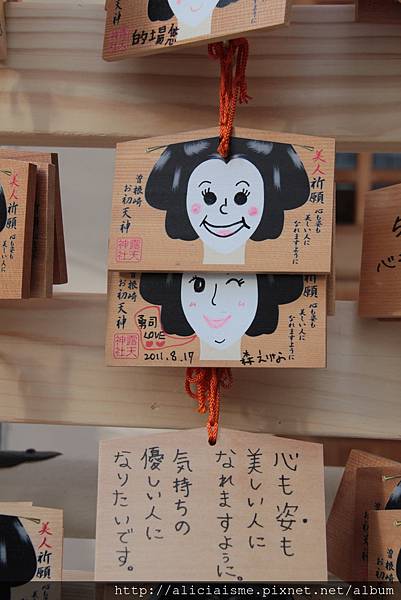 的場悠
美人祈願
心も姿も
美しい人に
なれますように
曽根崎
お初天神
露天神社
美人祈願
心も姿も
美しい人に
なれますように
曽根崎
お初天神
露天神社
勇司
LOVE
2011.8.17
心も姿も
美しい人に
なれますように。
気持ちの
優しい人に
なりたいです。
http://aliciaisme.pixnet.net/album